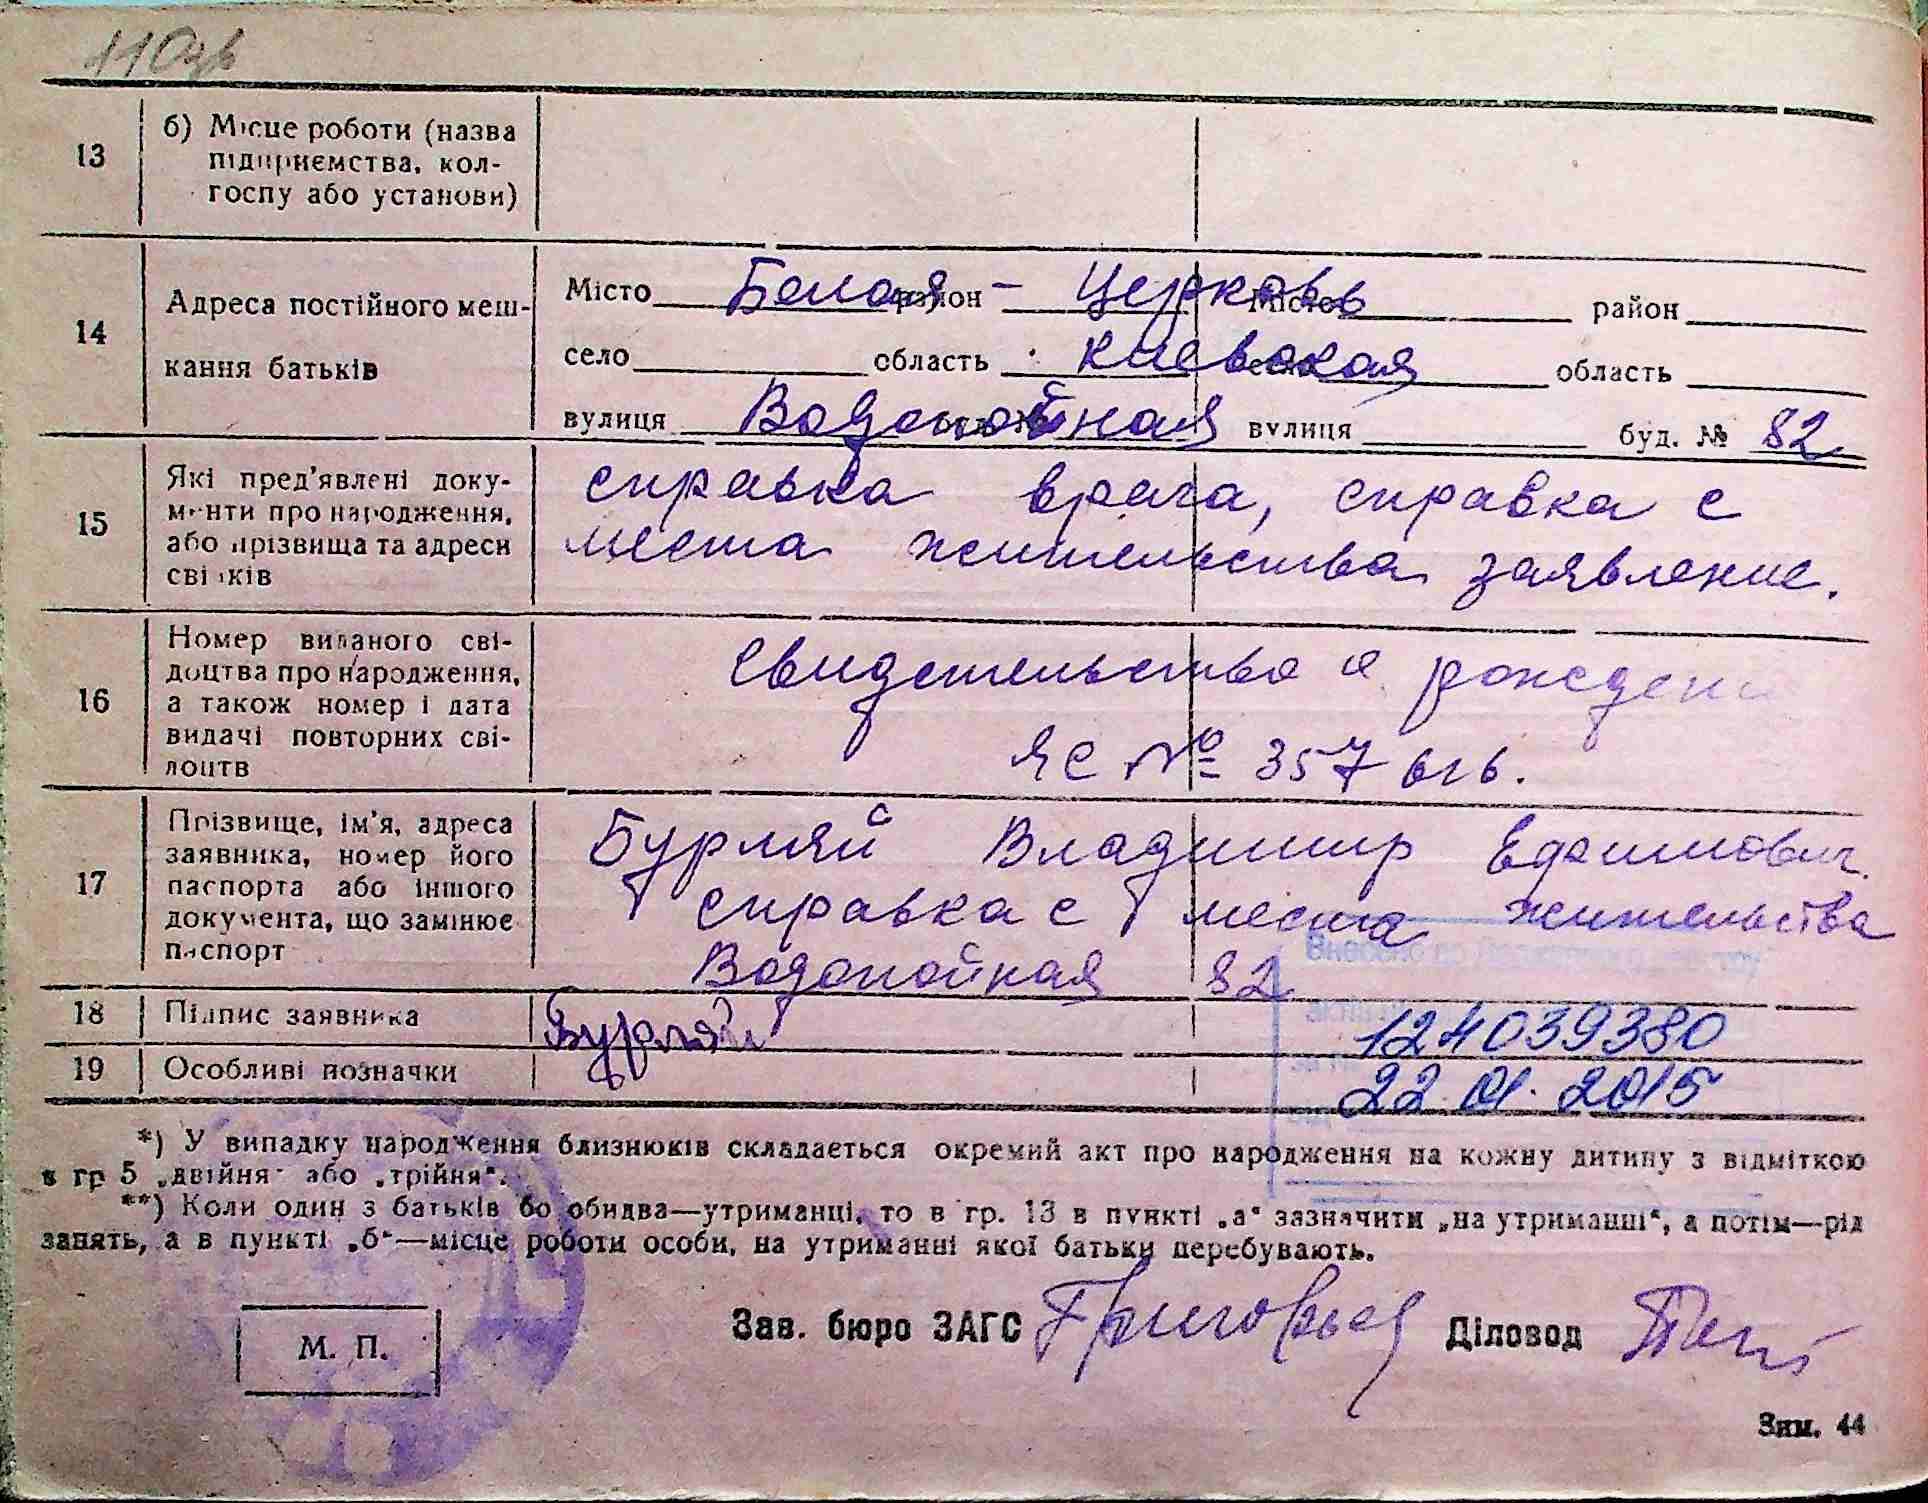 110зв
13
б) Місце роботи (назва
підприємства, кол-
госпу або установи)
14
Адреса постійного меш-
кання батьків
Місто Белая - Церковь район Місто район
село область Киевская село область
вулиця Водопойная буд. № вулиця буд. № 82
15
Які пред'явлені доку-
менти про народження,
або прізвища та адреси
свідків
справка врача, справка с
места жительства заявление.
16
Номер виданого сві-
доцтва про народження,
а також номер і дата
видачі повторних сві-
доцтв
Свидетельство о рождени
ЯС № 357
17
Прізвище, ім'я, адреса
заявника, номер його
паспорта або іншого
документа, що замінює
паспорт
Бурляй Владимир
справка с места жительства
Водопойная 82
18 Підпис заявника Бурляй
Внесено до Державного реєстру
124039380
19 Особливі позначки
22.01.2015
*) У випадку народження близнюків складається окремий акт про народження на кожну дитину з відміткою
в гр 5 „двійня" або „трійня".
**) Коли один з батьків бо обидва—утриманці, то в гр. 13 в пункті „а" зазначити „на утриманні", а потім—рід
занять, а в пункті „б"—місце роботи особи, на утриманні якої батьки перебувають.
М. П.
Зав. бюро ЗАГС Григорьев Діловод
Зим. 44